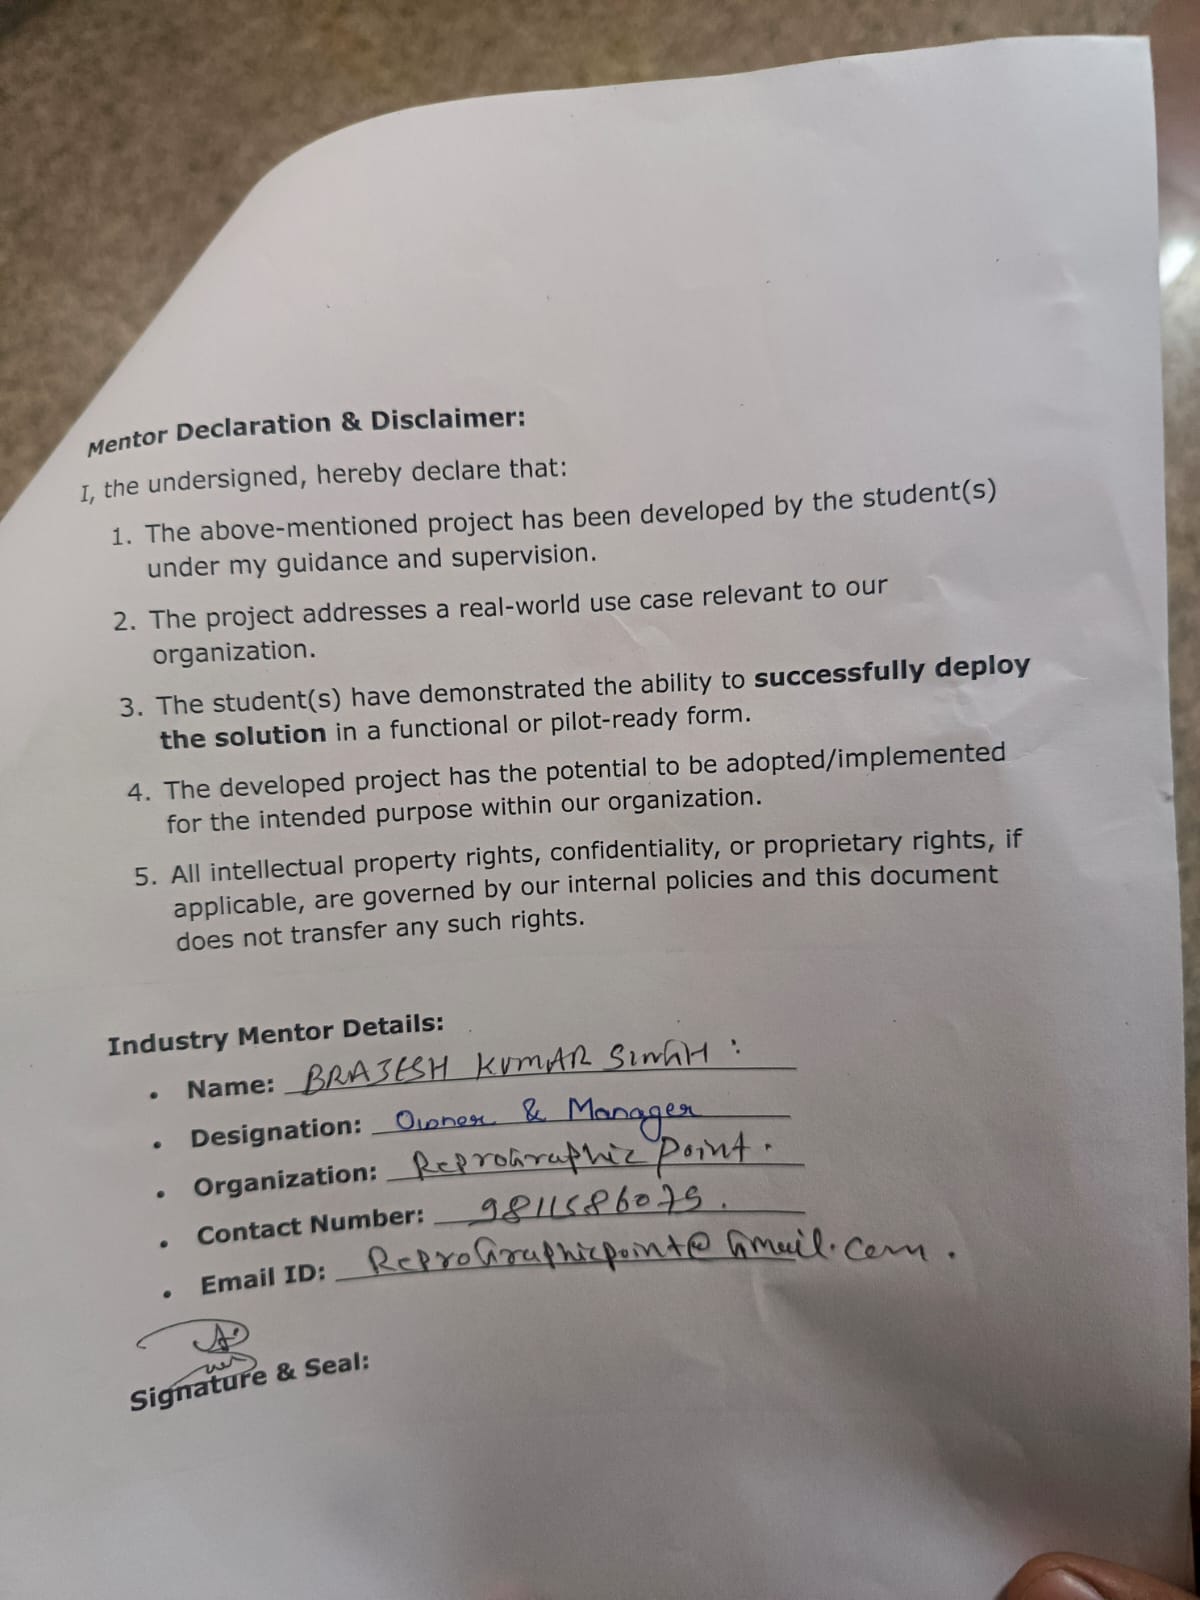 Mentor Declaration & Disclaimer:
I, the undersigned, hereby declare that:
1. The above-mentioned project has been developed by the student(s)
under my guidance and supervision.
2. The project addresses a real-world use case relevant to our
organization.
3. The student(s) have demonstrated the ability to successfully deploy
the solution in a functional or pilot-ready form.
4. The developed project has the potential to be adopted/implemented
for the intended purpose within our organization.
5. All intellectual property rights, confidentiality, or proprietary rights, if
applicable, are governed by our internal policies and this document
does not transfer any such rights.
Industry Mentor Details:
• Name: BRAJESH KUMAR SINGH :
• Designation: Owner & Manager
• Organization: ReproGraphic Point.
• Contact Number:
• Email ID: ReproGraphicpoint@Gmail.com.
Signature & Seal: